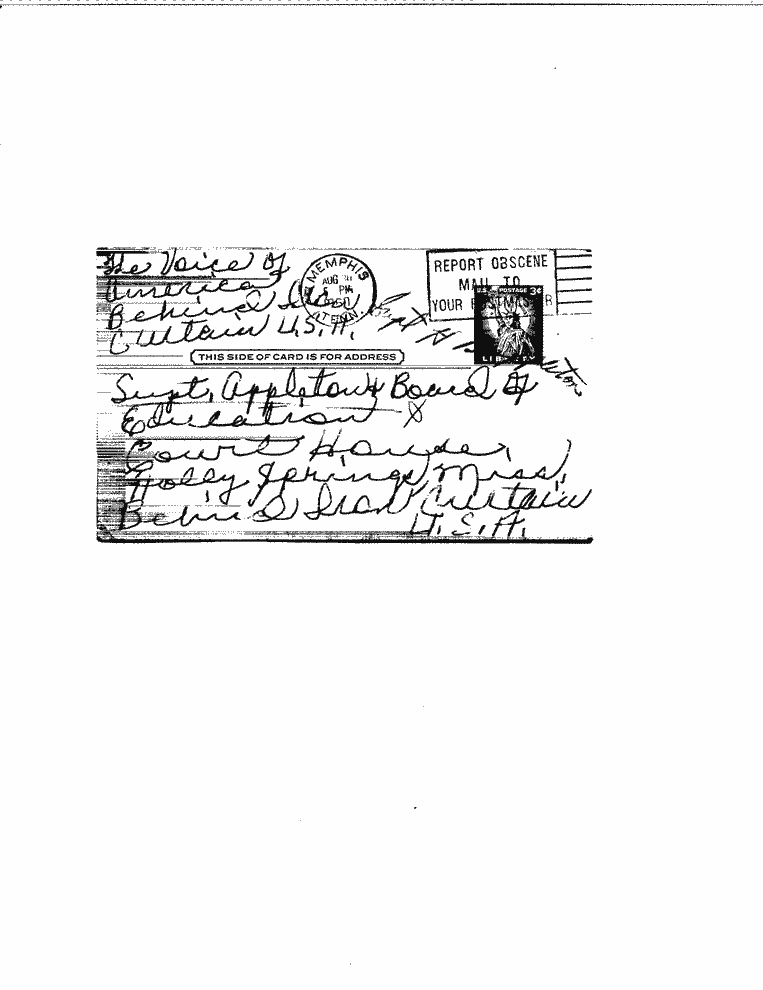 The Voice of
America
Behind Iron
Curtain U.S.A.
MEMPHIS
AUG
PM
TENN.
REPORT OBSCENE
MAIL TO
YOUR POSTMASTER
THIS SIDE OF CARD IS FOR ADDRESS
Supt. Appleton & Board of
Education X
Court House,
Holly Springs, Miss.
Behind Iron Curtain
U.S.A.